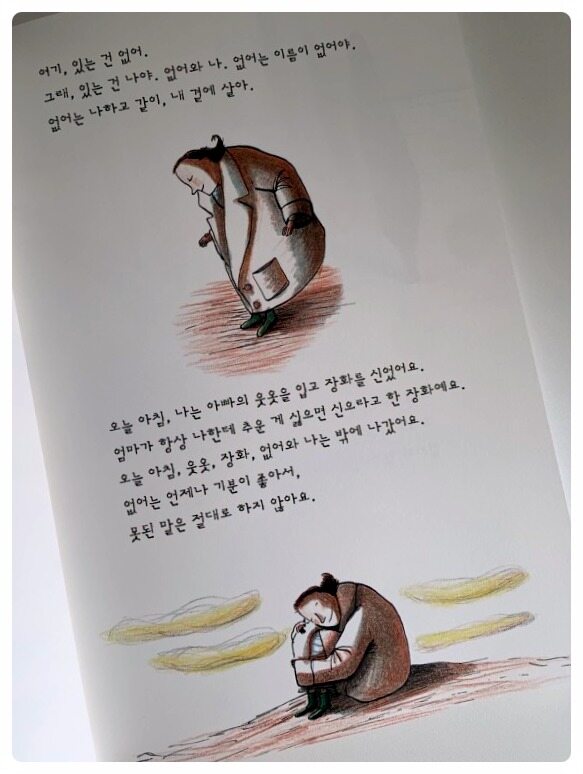 여기, 있는 건 없어.
그래, 있는 건 나야. 없어와 나. 없어는 이름이 없어야.
없어는 나하고 같이, 내 곁에 살아.
오늘 아침, 나는 아빠의 웃옷을 입고 장화를 신었어요.
엄마가 항상 나한테 추운 게 싫으면 신으라고 한 장화예요.
오늘 아침, 웃옷, 장화, 없어와 나는 밖에 나갔어요.
없어는 언제나 기분이 좋아서,
못된 말은 절대로 하지 않아요.